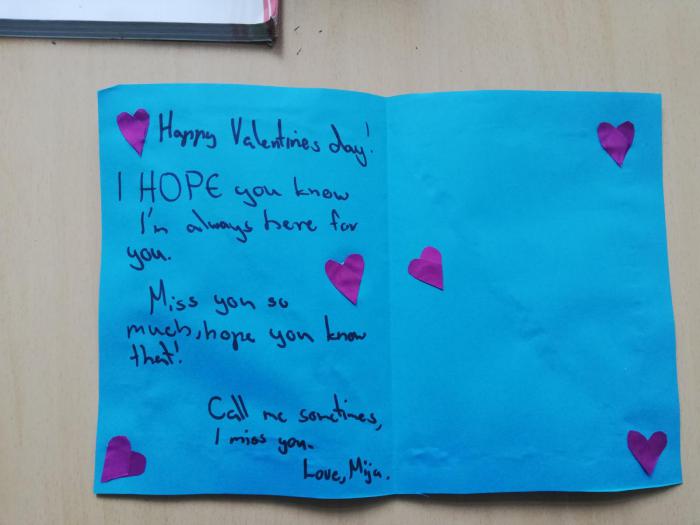 Happy Valentines day!
I HOPE you know
I'm always here for
you.
Miss you so
much, hope you know
that!
Call me sometimes,
I miss you.
Love, Mija.